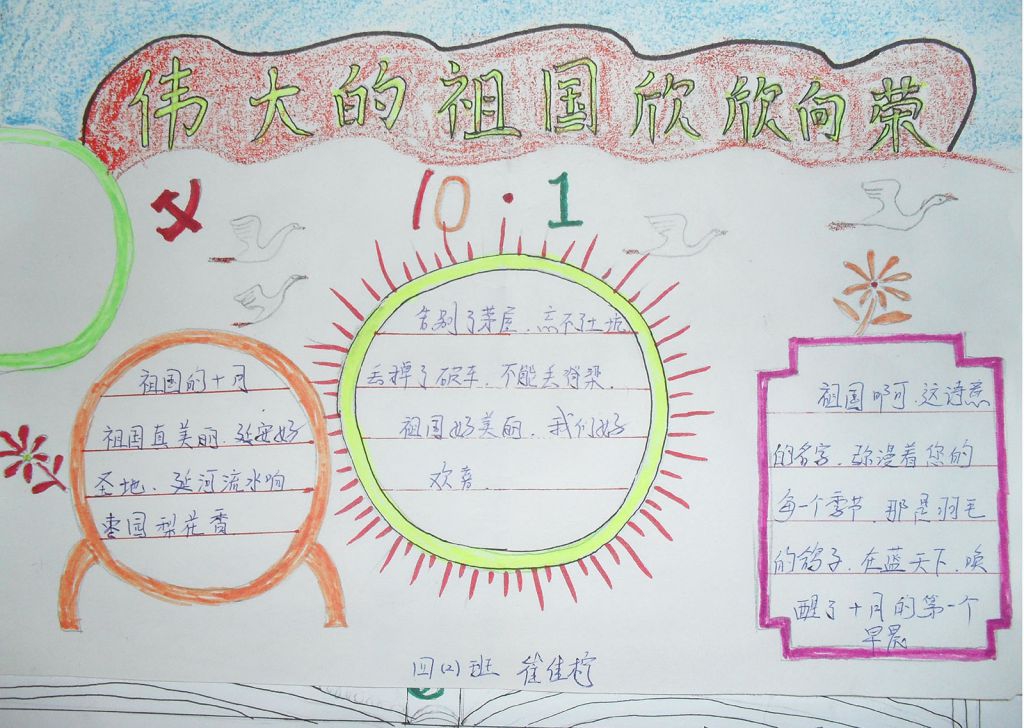 伟大的祖国欣欣向荣
10·1
祖国的十月
祖国真美丽．延安好
圣地．延河流水响
枣园梨花香
告别了茅屋．忘不了土坑
丢掉了破车．不能丢脊梁
祖国好美丽．我们好
欢喜．
祖国啊可．这诗意
的名字．弥漫着您的
每一个季节．那是羽毛
的鸽子．在蓝天下．唤
醒了十月的第一个
早晨
四(2)班 崔佳柠